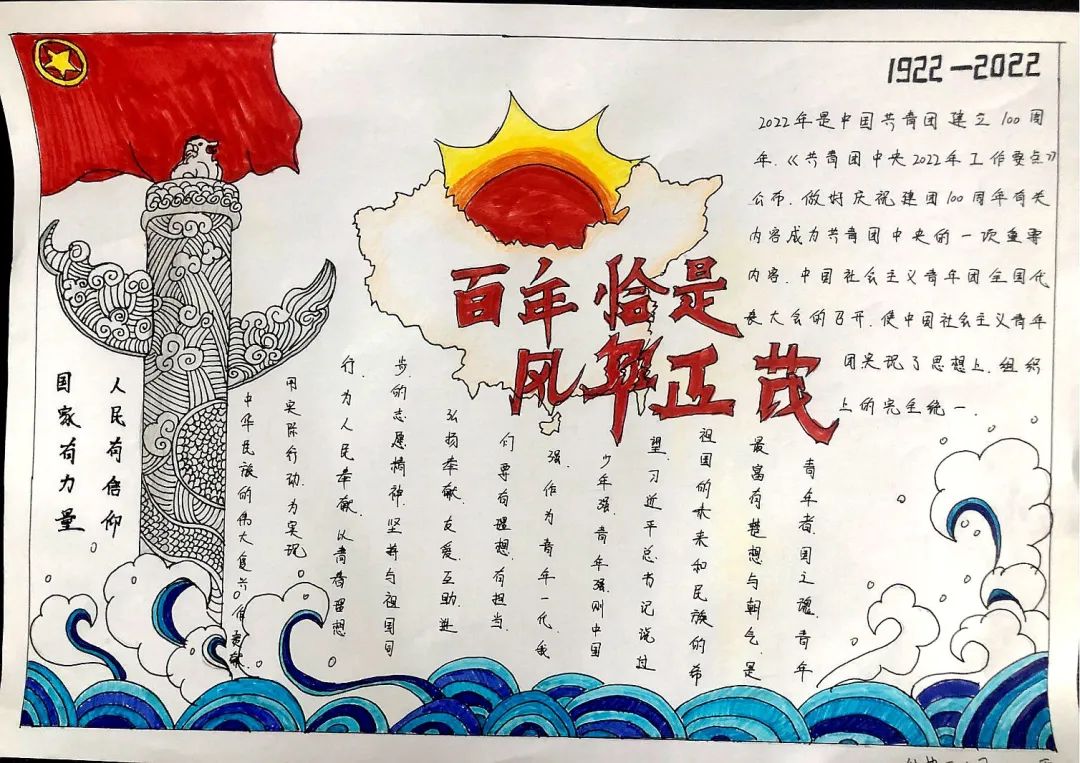 1922—2022
百年恰是
风华正茂
2022年是中国共青团建立100周
年.《共青团中央2022年工作要点》
公布.做好庆祝建团100周年有关
内容成为共青团中央的一项重要
内容.中国社会主义青年团全国代
表大会的召开.使中国社会主义青年
团实现了思想上.组织
上的完全统一.
青年者.国之魂.青年
最富有梦想与朝气.是
祖国的未来和民族的希
望.习近平总书记说过
少年强.青年强.则中国
强.作为青年一代.我
们要有理想.有担当.
弘扬奉献.友爱.互助.进
步.的志愿精神.坚持与祖国同
行.为人民奉献.以青春理想
用实际行动.为实现
中华民族的伟大复兴作贡献.
人民有信仰
国家有力量